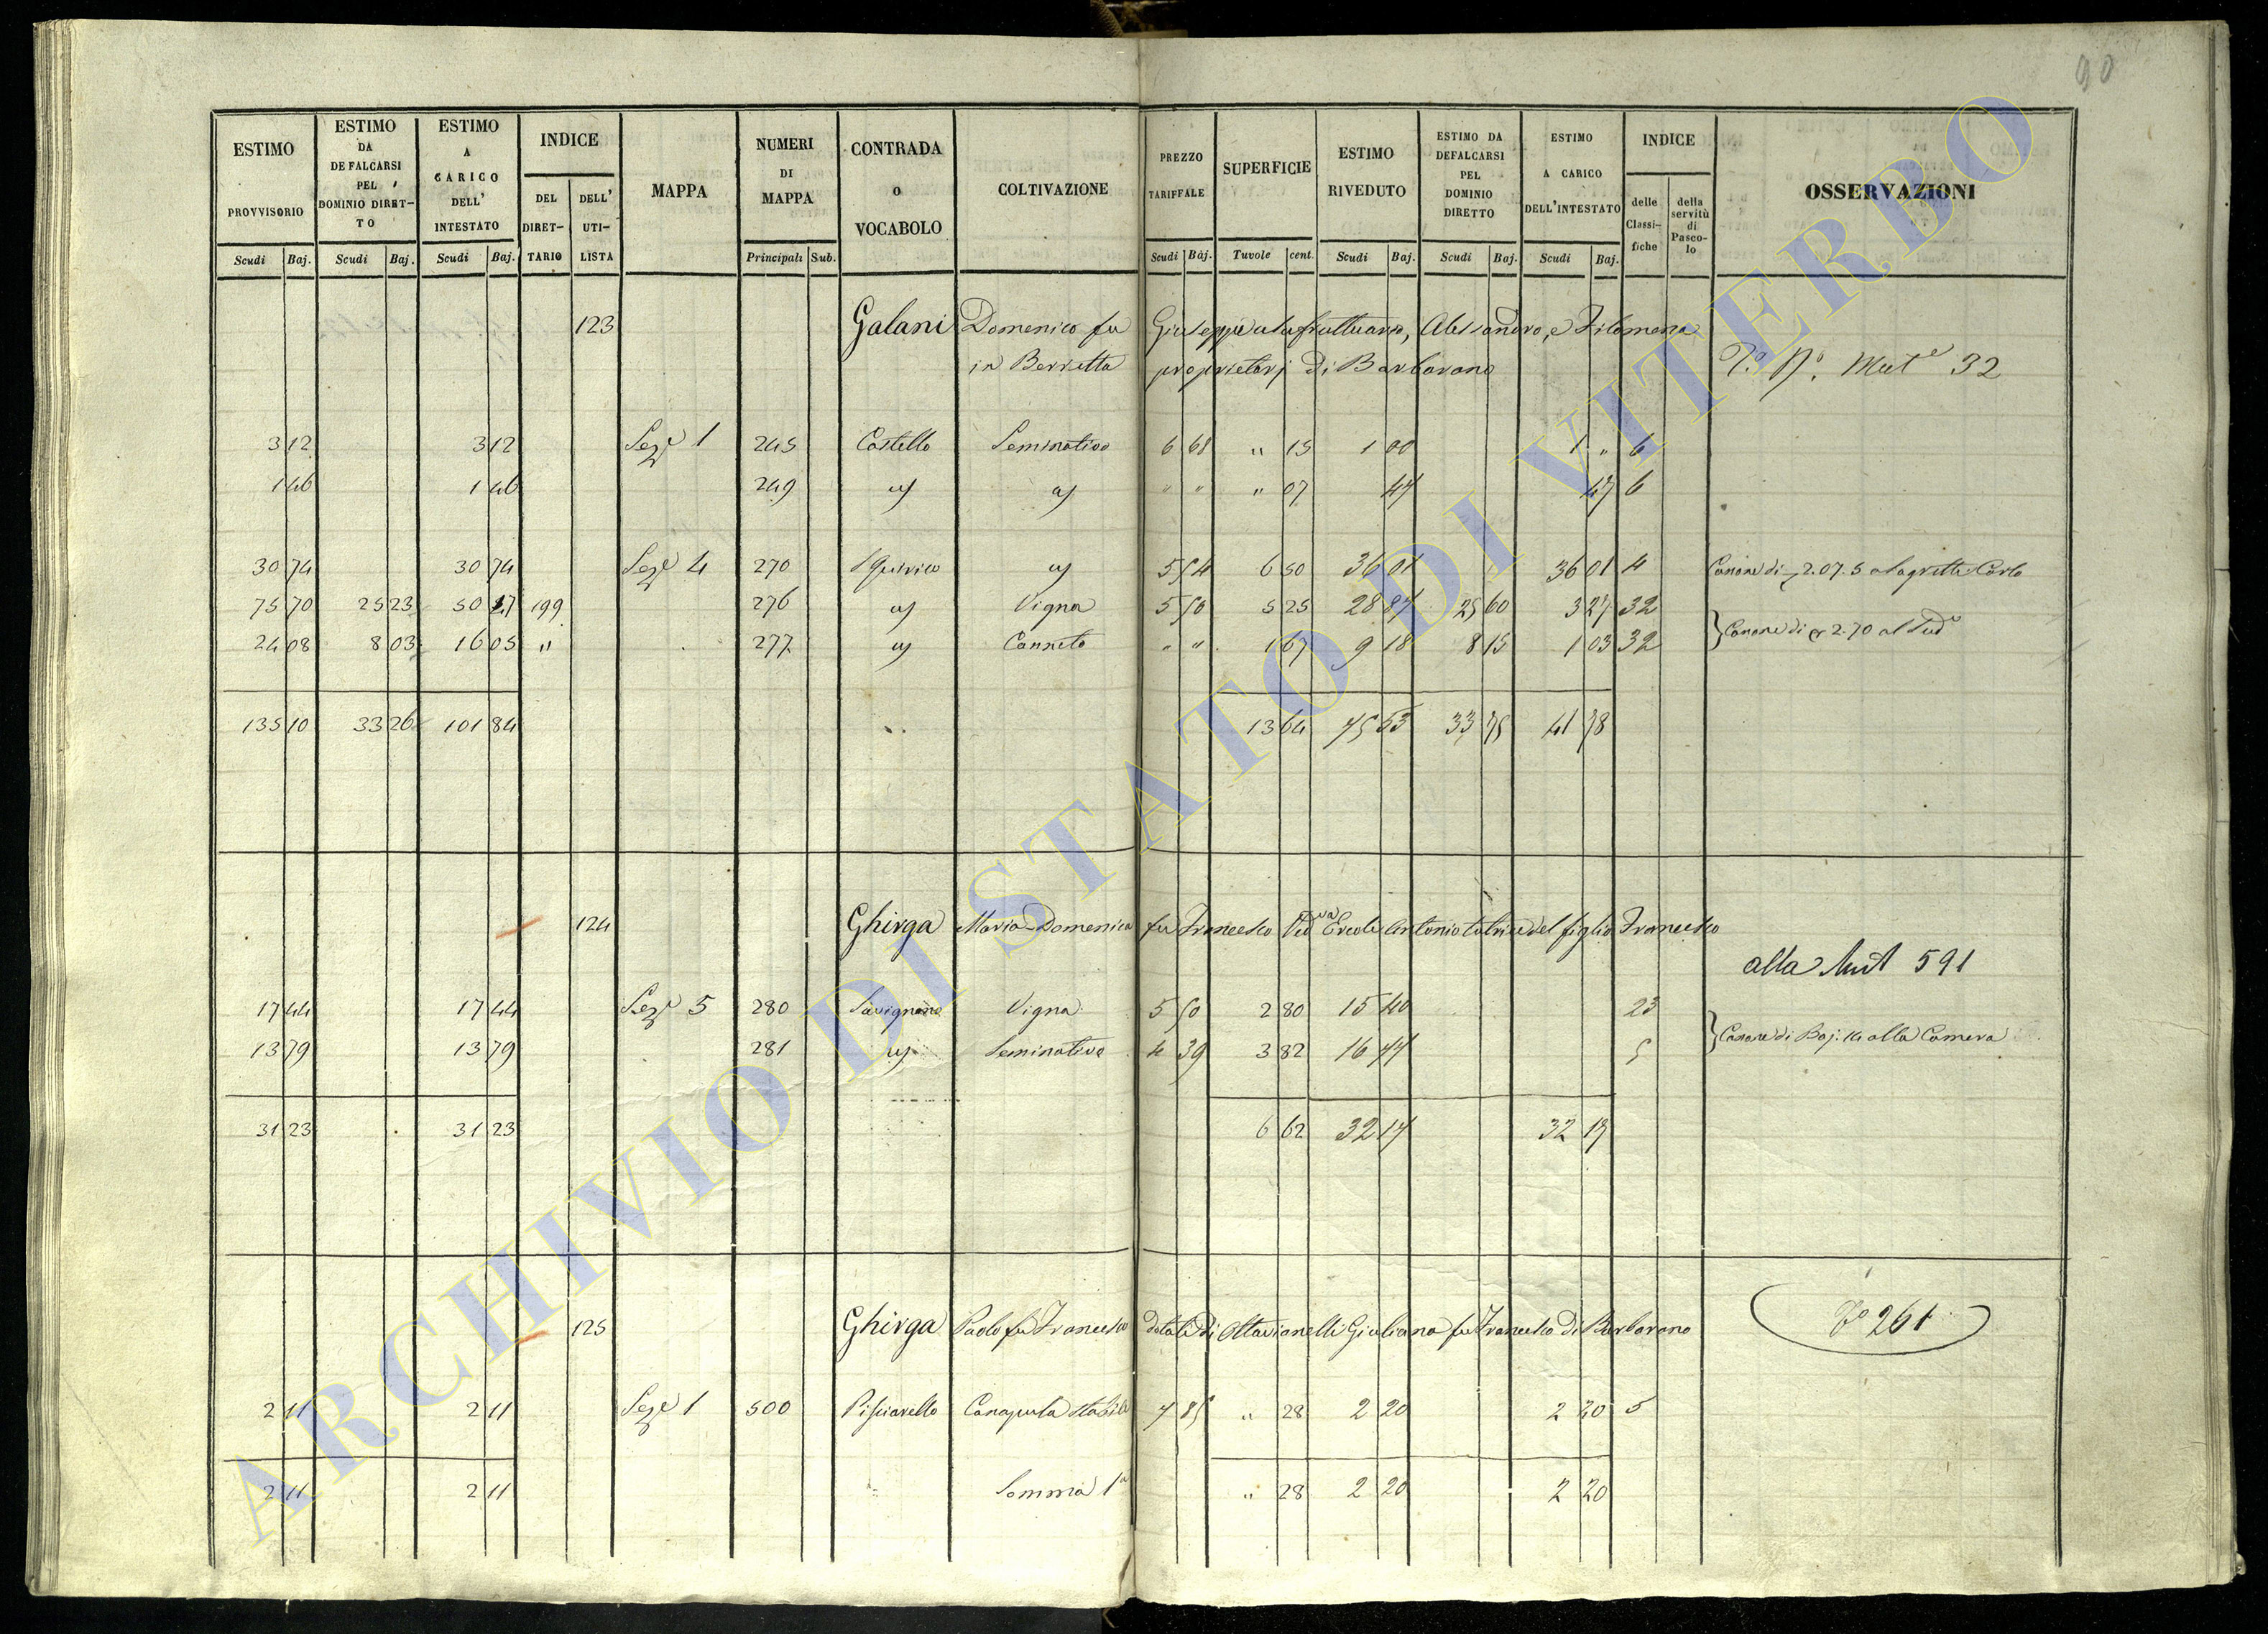 90
ESTIMO PROVVISORIO | ESTIMO DA DEFALCARSI PEL DOMINIO DIRETTO | ESTIMO A CARICO DELL' INTESTATO | INDICE DEL DIRETTARIO | DELL' UTILISTA | MAPPA | NUMERI DI MAPPA | CONTRADA O VOCABOLO | COLTIVAZIONE | PREZZO TARIFFALE | SUPERFICIE | ESTIMO RIVEDUTO | ESTIMO DA DEFALCARSI PEL DOMINIO DIRETTO | ESTIMO A CARICO DELL'INTESTATO | INDICE delle Classifiche | della servitù di Pascolo | OSSERVAZIONI
Scudi Baj. | Scudi Baj. | Scudi Baj. | Principali Sub. | Scudi Baj. | Tavole cent. | Scudi Baj. | Scudi Baj. | Scudi Baj.
123 Galani Domenico fu Giuseppe usufruttuario, Alessandro, e Filomena
in Berretta proprietarj di Barbarano Mut 32
3 12 | 3 12 | Seze 1 | 245 | Castello | Seminativo | 6 68 | " 15 | 1 00 | 1 " | 6
1 46 | 1 46 | 249 | " " | " 07 | 47 | 47 | 6
30 74 | 30 74 | Seze 4 | 270 | S Quirico | 5 54 | 6 50 | 36 01 | 36 01 | 4 | Canone di 2.07.5 a Carlo
75 70 | 25 23 | 50 47 | 199 | 276 | Vigna | 5 50 | 5 25 | 28 87 | 25 60 | 3 27 | 32
24 08 | 8 03 | 16 05 | " | 277 | Canneto | " " | 1 67 | 9 18 | 8 15 | 1 03 | 32 | Canone di 2.70 al
135 10 | 33 26 | 101 84 | 13 64 | 75 53 | 33 75 | 41 78
124 Ghirga Maria Domenica fu Francesco Vedva Ercole Antonio tutrice del figlio Francesco
alla Mut 591
17 44 | 17 44 | Seze 5 | 280 | Savignano | Vigna | 5 50 | 2 80 | 15 40 | 23
13 79 | 13 79 | 281 | Seminativo | 4 39 | 3 82 | 16 77 | 5 | Canone di Baj. 14 alla Camera
31 23 | 31 23 | 6 62 | 32 17 | 32 17
125 Ghirga Paolo fu Francesco dotale di Ottavianelli Giuliana fu Francesco di Barbarano
261
2 11 | 2 11 | Seze 1 | 500 | Pisciarello | Canapula stabile | 7 85 | " 28 | 2 20 | 2 20 | 5
2 11 | 2 11 | Somma 1a | " 28 | 2 20 | 2 20
ARCHIVIO DI STATO DI VITERBO